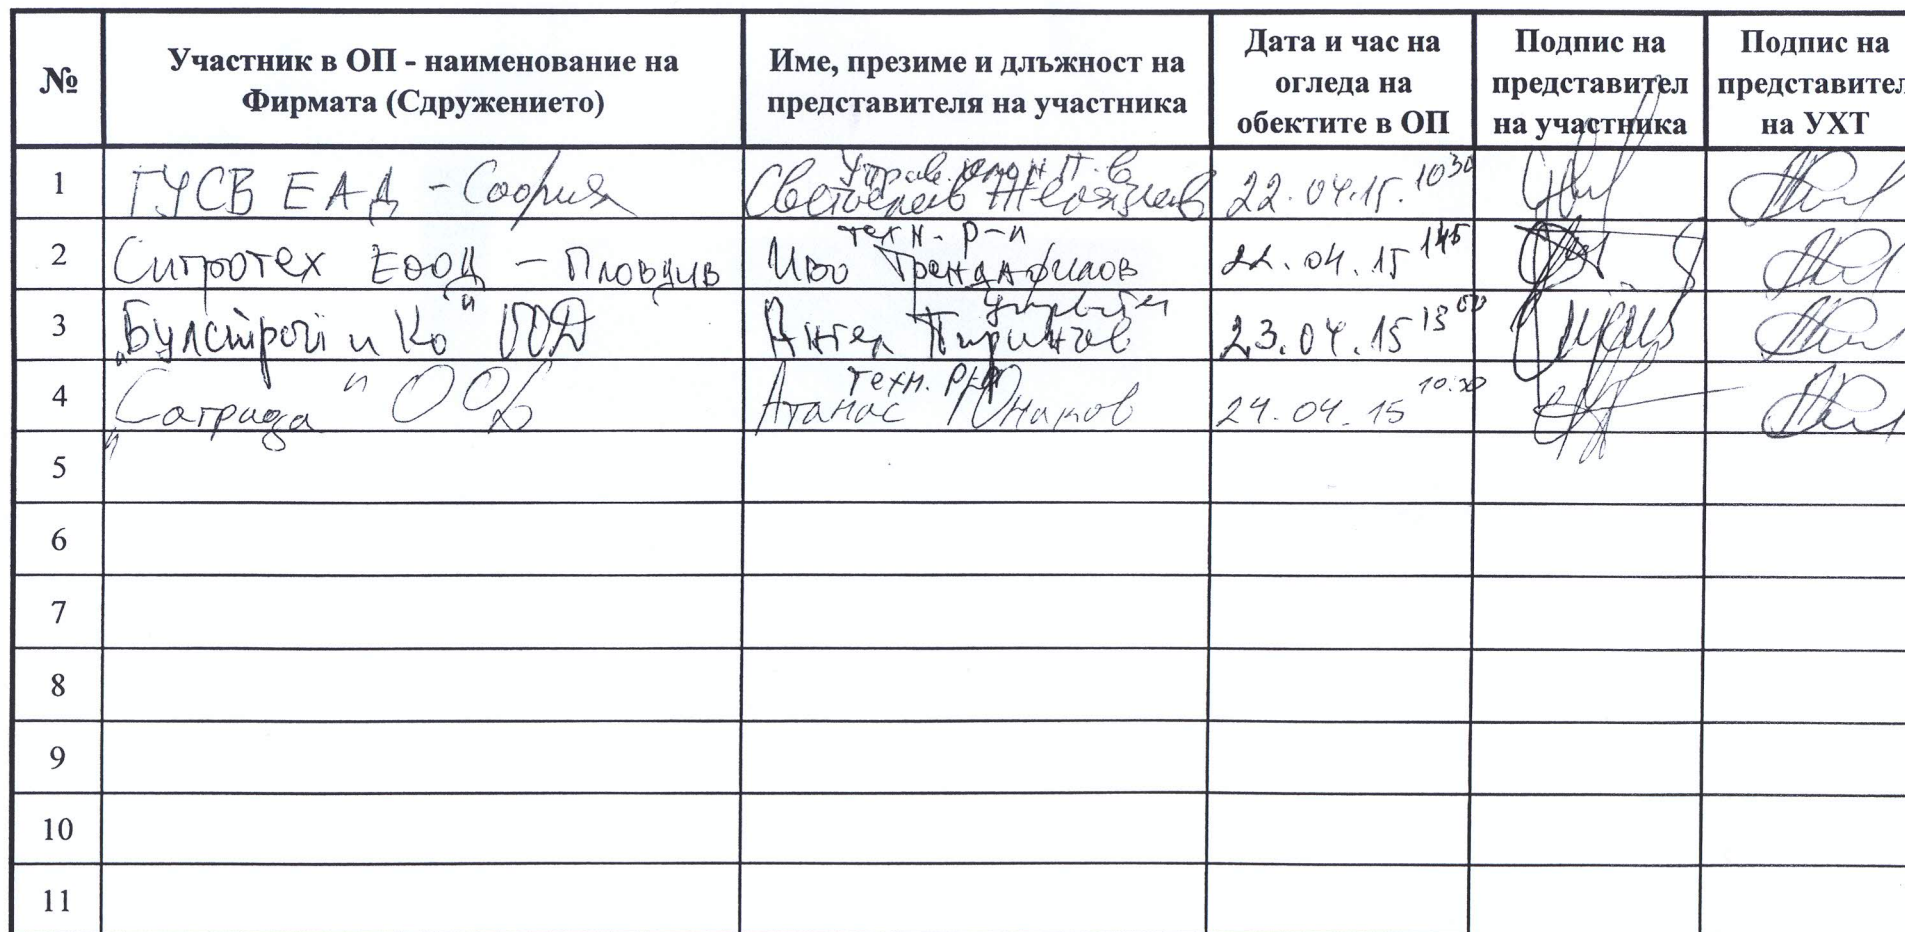 №
Участник в ОП - наименование на
Фирмата (Сдружението)
Име, презиме и длъжност на
представителя на участника
Дата и час на
огледа на
обектите в ОП
Подпис на
представител
на участника
Подпис на
представител
на УХТ
1
ГУСВ ЕАД - София
22.04.15. 10³⁰
2
Ситротех ЕООД - Пловдив
техн. р-л
Иво Трендафилов
22.04.15
3
„Булстрой и Ко" ООД
Ангел Пиринчев
23.04.15 13⁰⁰
4
„Саграда" ООД
техн. рък
Атанас Юнаков
24.04.15 10:30
5
6
7
8
9
10
11